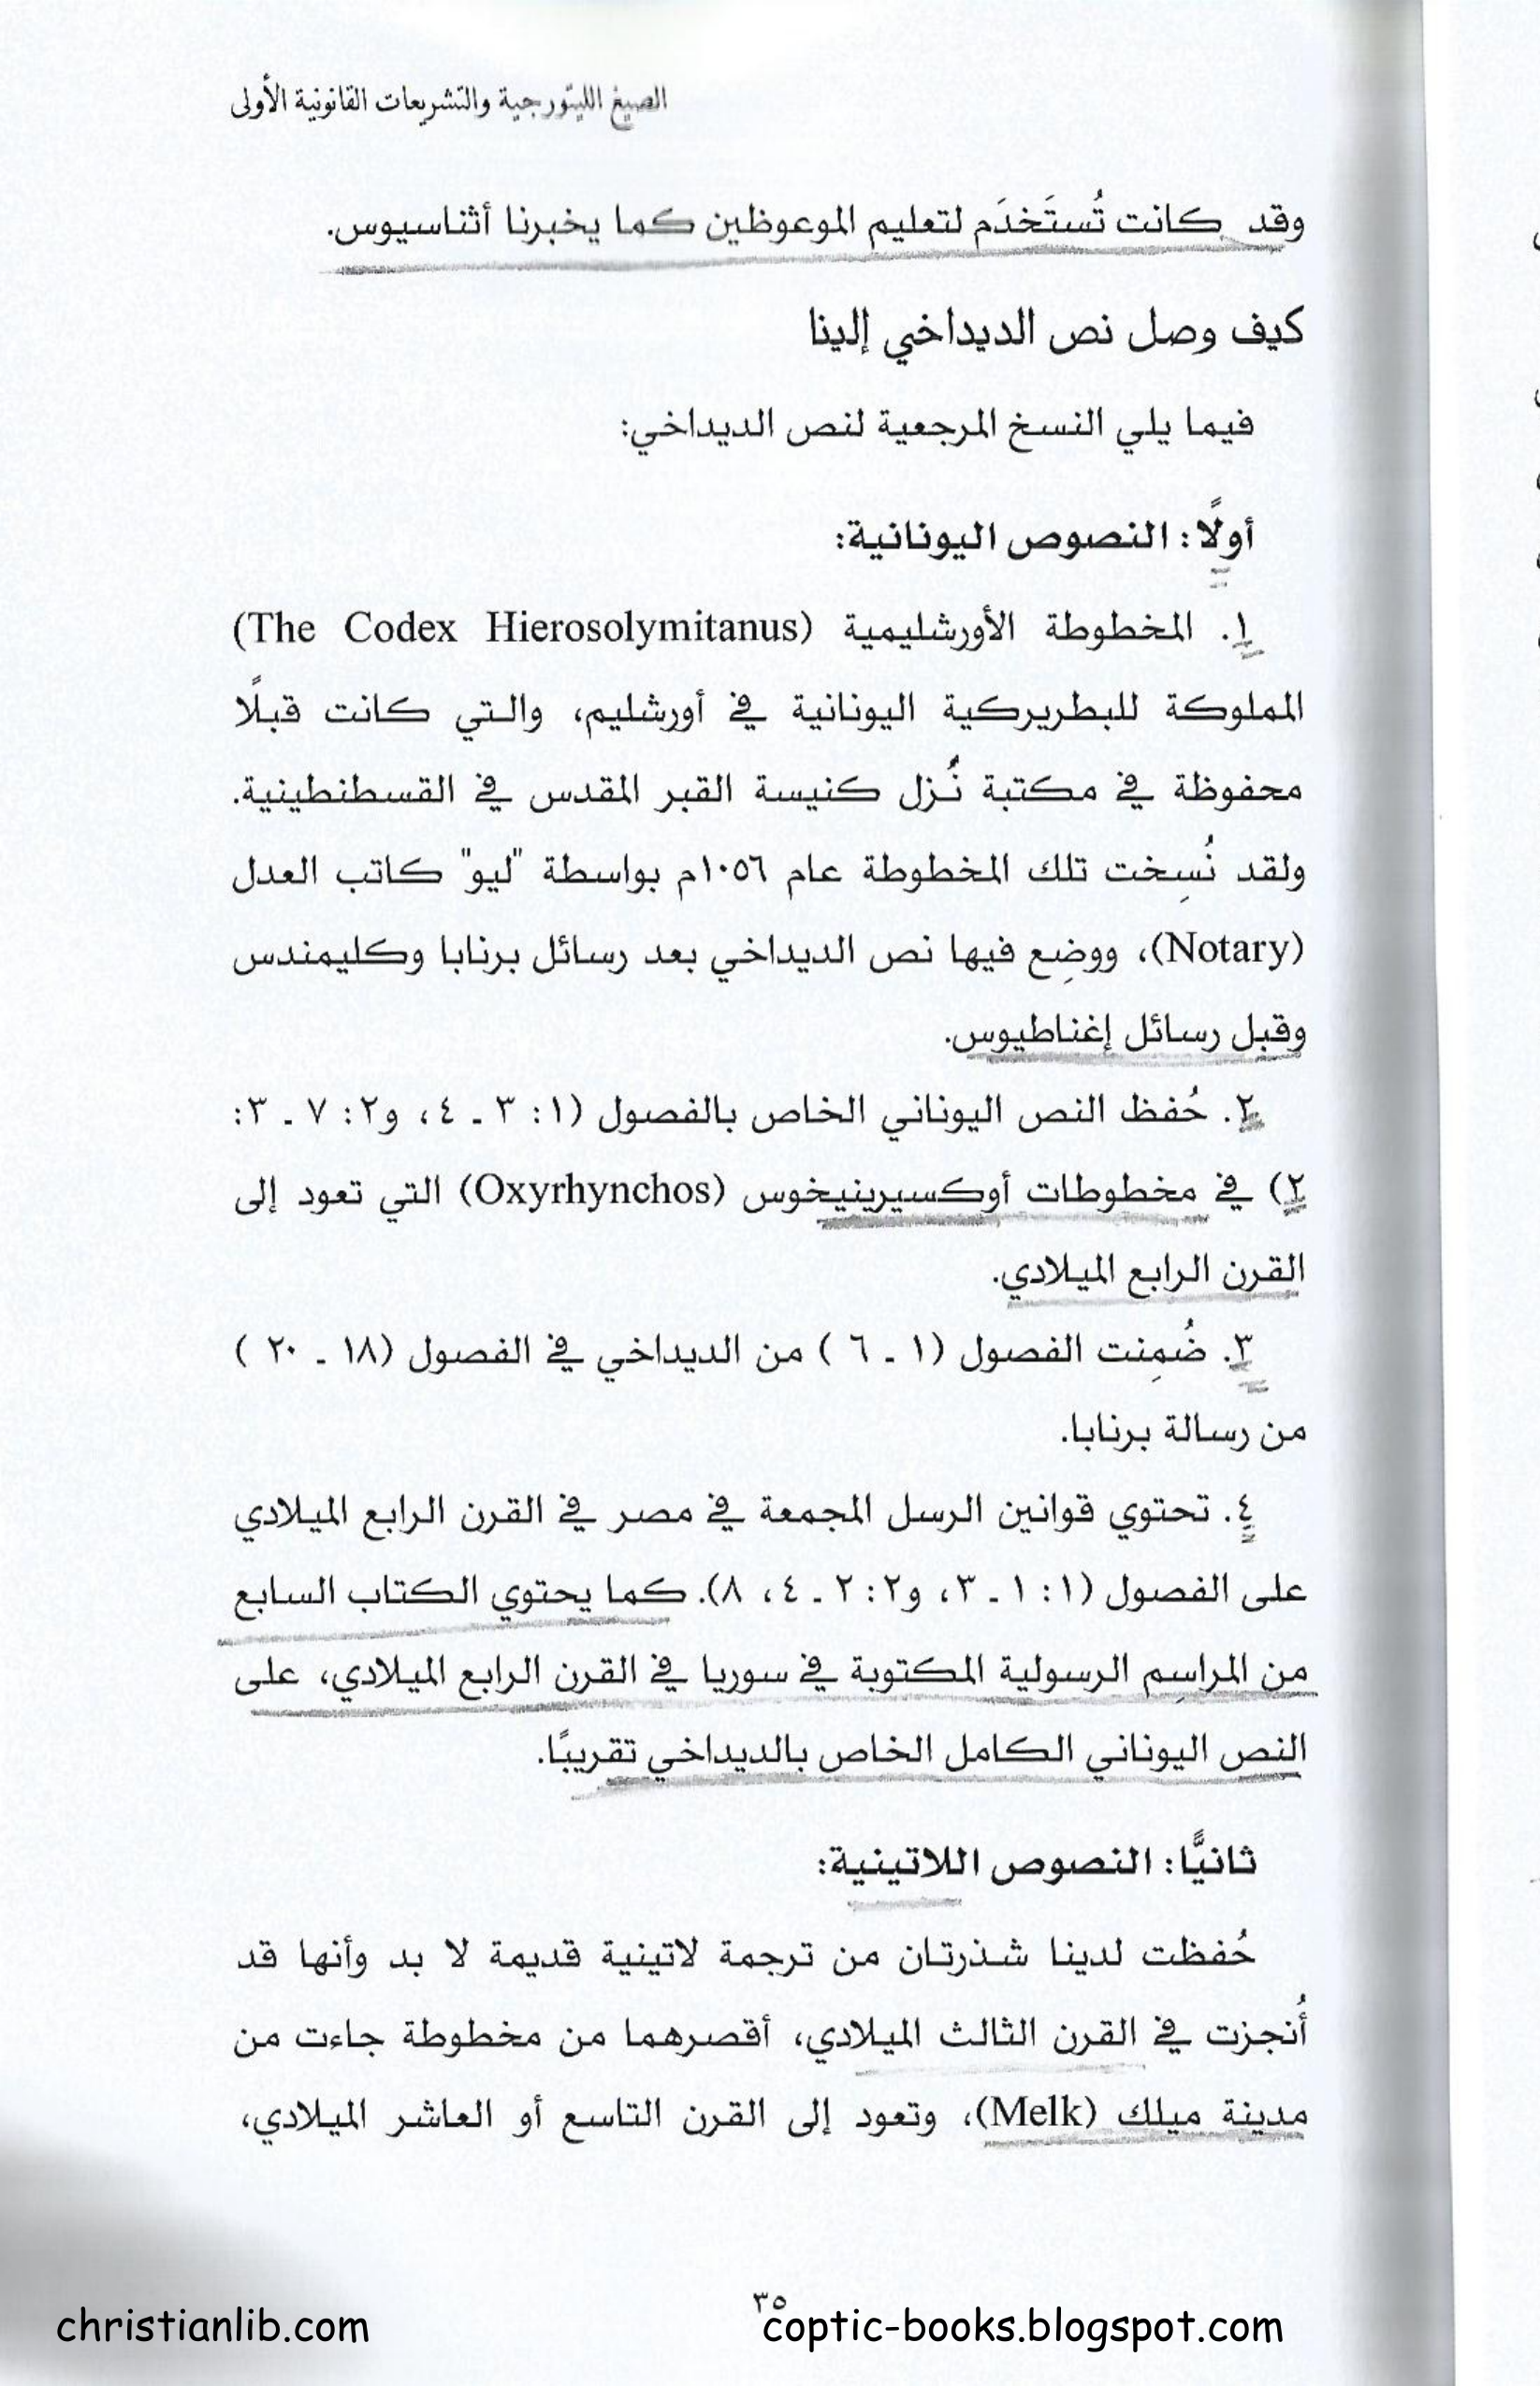 الصيغ الليتورجية والتشريعات القانونية الأولى
وقد كانت تُستَخدَم لتعليم الموعوظين كما يخبرنا أثناسيوس.
كيف وصل نص الديداخي إلينا
فيما يلي النسخ المرجعية لنص الديداخي:
أولًا: النصوص اليونانية:
١. المخطوطة الأورشليمية (The Codex Hierosolymitanus)
المملوكة للبطريركية اليونانية في أورشليم، والتي كانت قبلًا
محفوظة في مكتبة نُزل كنيسة القبر المقدس في القسطنطينية.
ولقد نُسِخت تلك المخطوطة عام ١٠٥٦م بواسطة "ليو" كاتب العدل
(Notary)، ووضِع فيها نص الديداخي بعد رسائل برنابا وكليمندس
وقبل رسائل إغناطيوس.
٢. حُفظ النص اليوناني الخاص بالفصول (١: ٣ ـ ٤، و٢: ٧ ـ ٣:
٢) في مخطوطات أوكسيرينيخوس (Oxyrhynchos) التي تعود إلى
القرن الرابع الميلادي.
٣. ضُمِنت الفصول (١ ـ ٦ ) من الديداخي في الفصول (١٨ ـ ٢٠ )
من رسالة برنابا.
٤. تحتوي قوانين الرسل المجمعة في مصر في القرن الرابع الميلادي
على الفصول (١: ١ ـ ٣، و٢: ٢ ـ ٤، ٨). كما يحتوي الكتاب السابع
من المراسِم الرسولية المكتوبة في سوريا في القرن الرابع الميلادي، على
النص اليوناني الكامل الخاص بالديداخي تقريبًا.
ثانيًّا: النصوص اللاتينية:
حُفظت لدينا شذرتان من ترجمة لاتينية قديمة لا بد وأنها قد
أُنجزت في القرن الثالث الميلادي، أقصرهما من مخطوطة جاءت من
مدينة ميلك (Melk)، وتعود إلى القرن التاسع أو العاشر الميلادي،
٣٥
christianlib.com
coptic-books.blogspot.com